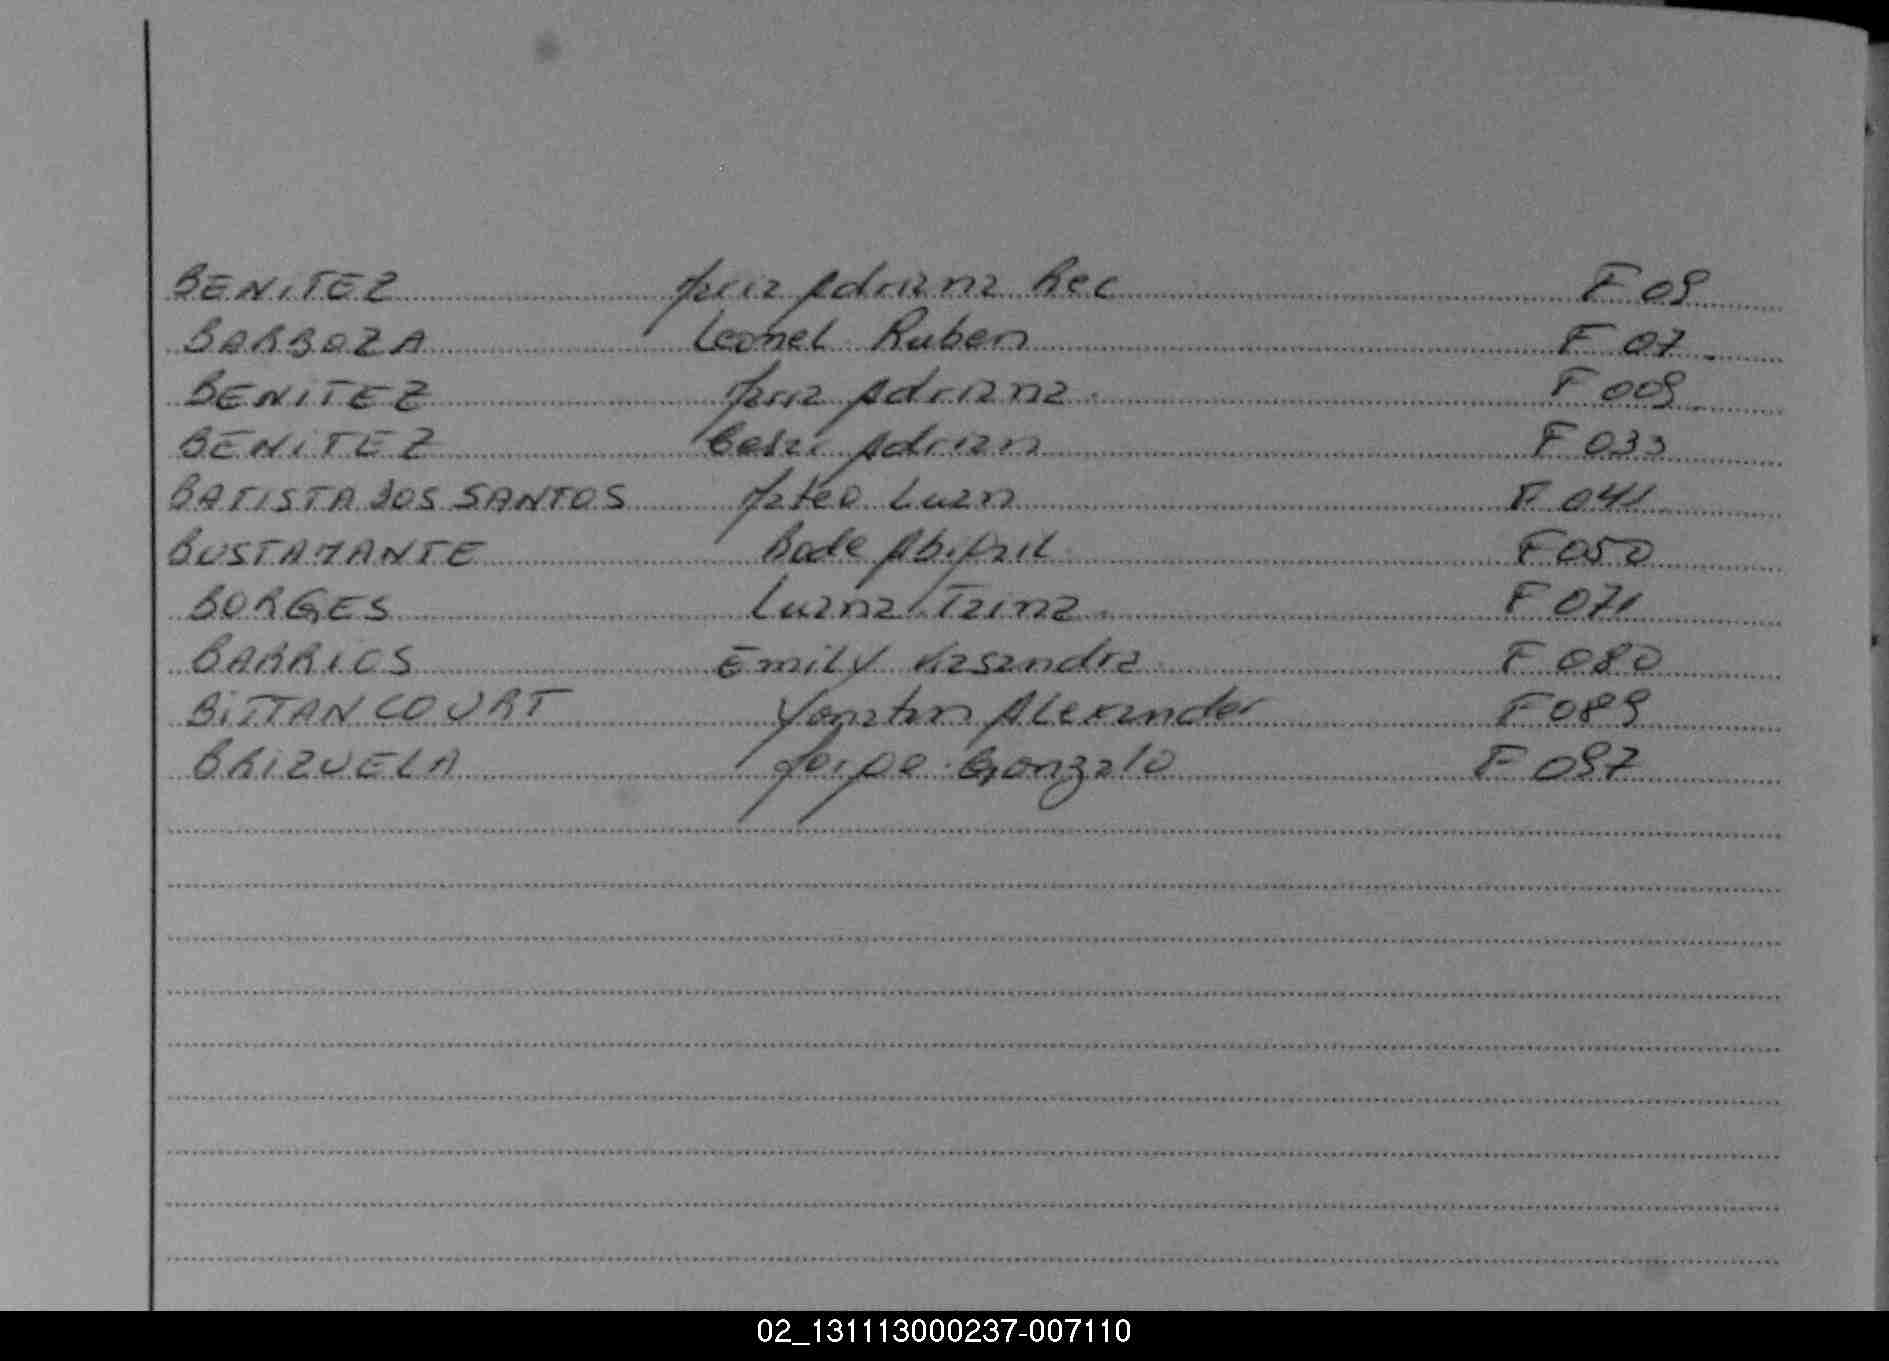 BENITEZ Maria Adriana Rec F 09
BARBOZA Leonel Ruben F 07
BENITEZ Maria Adriana F 009
BENITEZ Adrian F 033
BATISTA DOS SANTOS Mateo Luan F 041
BUSTAMANTE Abigail F 050
BORGES Luana Taina F 071
BARRIOS Emily Kasandra F 080
BITTANCOURT Yonatan Alexander F 089
BRIZUELA Gonzalo F 097
02_131113000237-007110